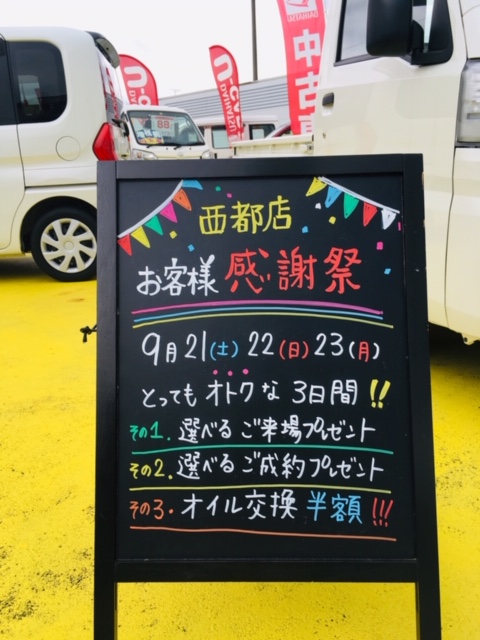 西都店
お客様 感謝祭
9月21(土) 22(日) 23(月)
とっても オトクな 3日間!!
その1. 選べる ご来場プレゼント
その2. 選べる ご成約プレゼント
その3. オイル交換 半額!!!
中古
U-CAR
DAIHATSU